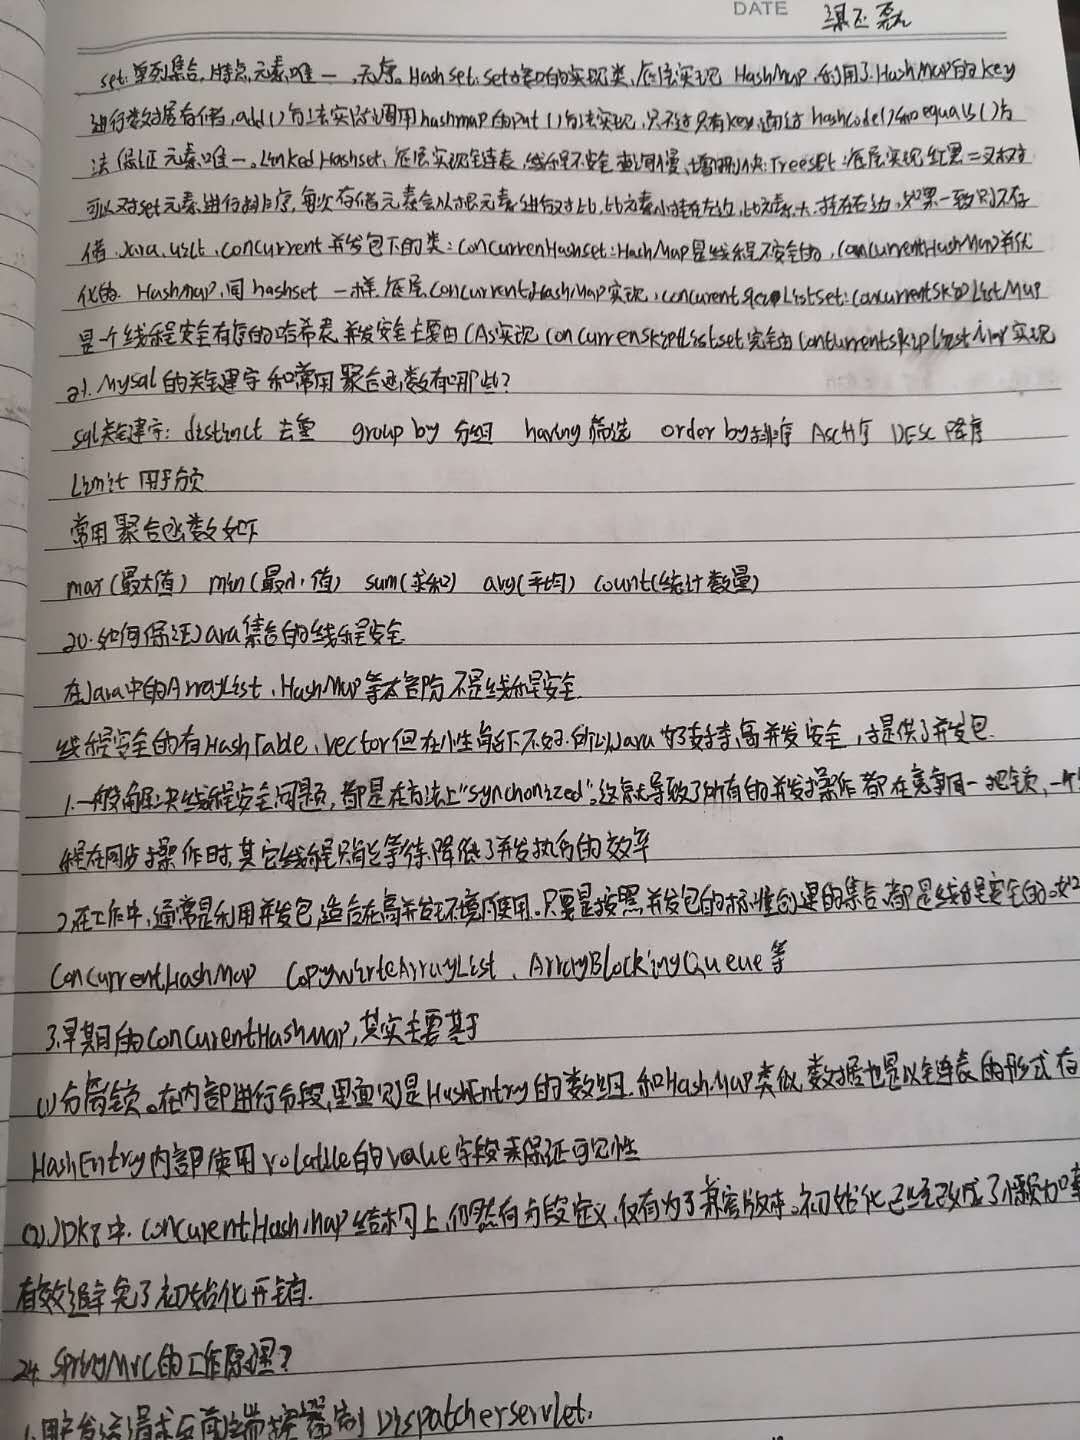 DATE
set:单列集合,特点,元素唯一,无序。Hash set:set接口的实现类,底层实现 HashMap,利用了HashMap的key
进行数据存储,add()方法实际调用hashmap的put()方法实现,只不过只有key,通过hashcode()和equals()方
法保证元素唯一。Linked Hashset:底层实现全链表,线程不安全,查询慢,增删快。Treeset:底层实现红黑二叉树
可以对set元素进行排序,每次存储元素会从根元素进行对比,比元素小挂在左边,比元素大,挂在右边,如果一致则不存
储.Java.util.concurrent并发包下的类:ConcurrenHashset:HashMap是线程不安全的,ConcurrentHashMap并优
化的 Hashmap,同hashset一样底层ConcurrentHashMap实现,concurent Skip Listset:ConcurrentSkip ListMap
是一个线程安全有序的哈希表,并发安全主要由CAS实现 ConcurrenSkiptListset完全由ConcurrentSkiplistMap实现
21. Mysql的关键字和常用聚合函数有哪些?
sql关键字: distinct 去重 group by 分组 having 筛选 order by排序 Asc升序 DESC 降序
Limit 用于分页
常用聚合函数如下
max(最大值) min(最小值) sum(求和) avg(平均) count(统计数量)
20.如何保证Java集合的线程安全
在Java中的ArrayList、HashMap等大部分不是线程安全
线程安全的有HashTable、Vector但在性能下不好.所以Java为了支持高并发安全,提供了并发包.
1.一般解决线程安全问题,都是在方法上"synchonized"。这就导致了所有的并发操作都在竞争同一把锁,一个
线程在同步操作时,其它线程只能等待.降低了并发执行的效率
2.在工作中,通常是利用并发包,适合在高并发环境内使用。只要是按照并发包的标准创建的集合,都是线程安全的.如
ConcurrentHashMap CopyWirteArrayList、ArrayBlockingQueue等
3.早期的ConcurentHashMap,其实主要基于
(1)分离锁。在内部进行分段,里面则是HashEntry的数组.和HashMap类似,数据也是以全链表的形式存
HashEntry内部使用volatile的value字段来保证可见性
(2)JDK8中.ConcurentHashMap结构上,仍然有分段定义,仅有为了兼容版本。初始化已经改成了懒加载
有效避免了初始化开销.
24. SpringMvc的工作原理?
1.用户发送请求至前端控制器 Dispatcherservlet.